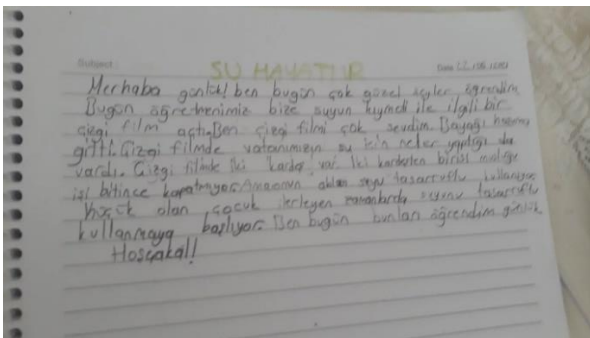 Subject :
Date 12 / 06 /
SU HAYATTIR
Merhaba günlük! ben bugün çok güzel şeyler öğrendim
Bugün öğretmenimiz bize suyun kıymeti ile ilgili bir
çizgi film açtı. Ben çizgi filmi çok sevdim. Bayağı hoşuma
gitti. Çizgi filmde vatanımızın su için neler yaptığı da
vardı. Çizgi filmde iki kardeş var. İki kardeşten birisi musluğu
işi bitince kapatmıyor. olan suyu tasarruflu kullanıyor.
küçük olan çocuk ilerleyen zamanlarda suyunu tasarruflu
kullanmaya başlıyor. Ben bugün bunları öğrendim günlük
Hoşçakal!